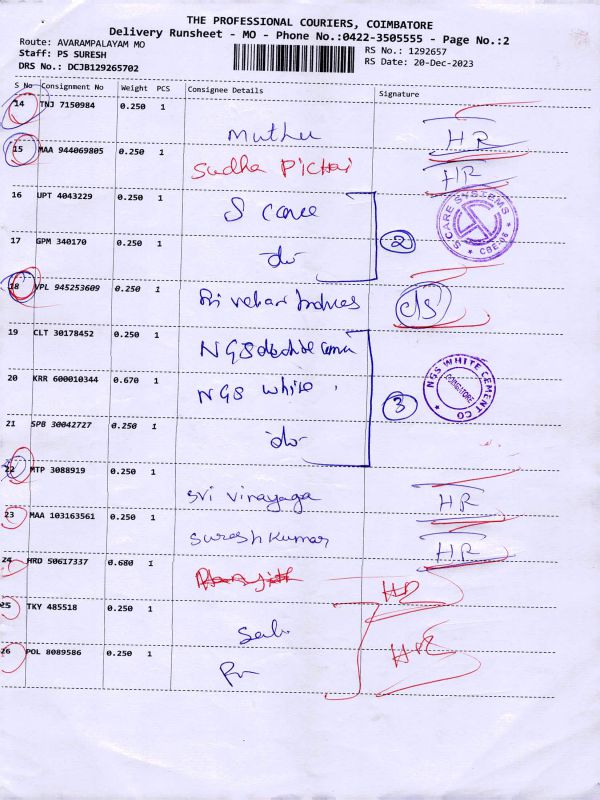 THE PROFESSIONAL COURIERS, COIMBATORE
Delivery Runsheet - MO - Phone No.:0422-3505555 - Page No.:2
Route: AVARAMPALAYAM MO
RS No.: 1292657
Staff: PS SURESH
RS Date: 20-Dec-2023
DRS No.: DCJB129265702
S No Consignment No Weight PCS Consignee Details Signature
14 TNJ 7150984 0.250 1
Muthu HR
15 MAA 944069805 0.250 1
Sudha Pichai HR
16 UPT 4043229 0.250 1
S Care
S CARE SYSTEMS CBE-06
17 GPM 340170 0.250 1
do 2
18 VPL 945253609 0.250 1
C/S
19 CLT 30178452 0.250 1
NGS
20 KRR 600010344 0.670 1
NGS white
3
NGS WHITE CEMENT CO COIMBATORE
21 SPB 30042727 0.250 1
do
22 MTP 3088919 0.250 1
Sri Vinayaga HR
23 MAA 103163561 0.250 1
Suresh Kumar HR
24 HRD 50617337 0.680 1
25 TKY 485518 0.250 1
26 POL 8089586 0.250 1